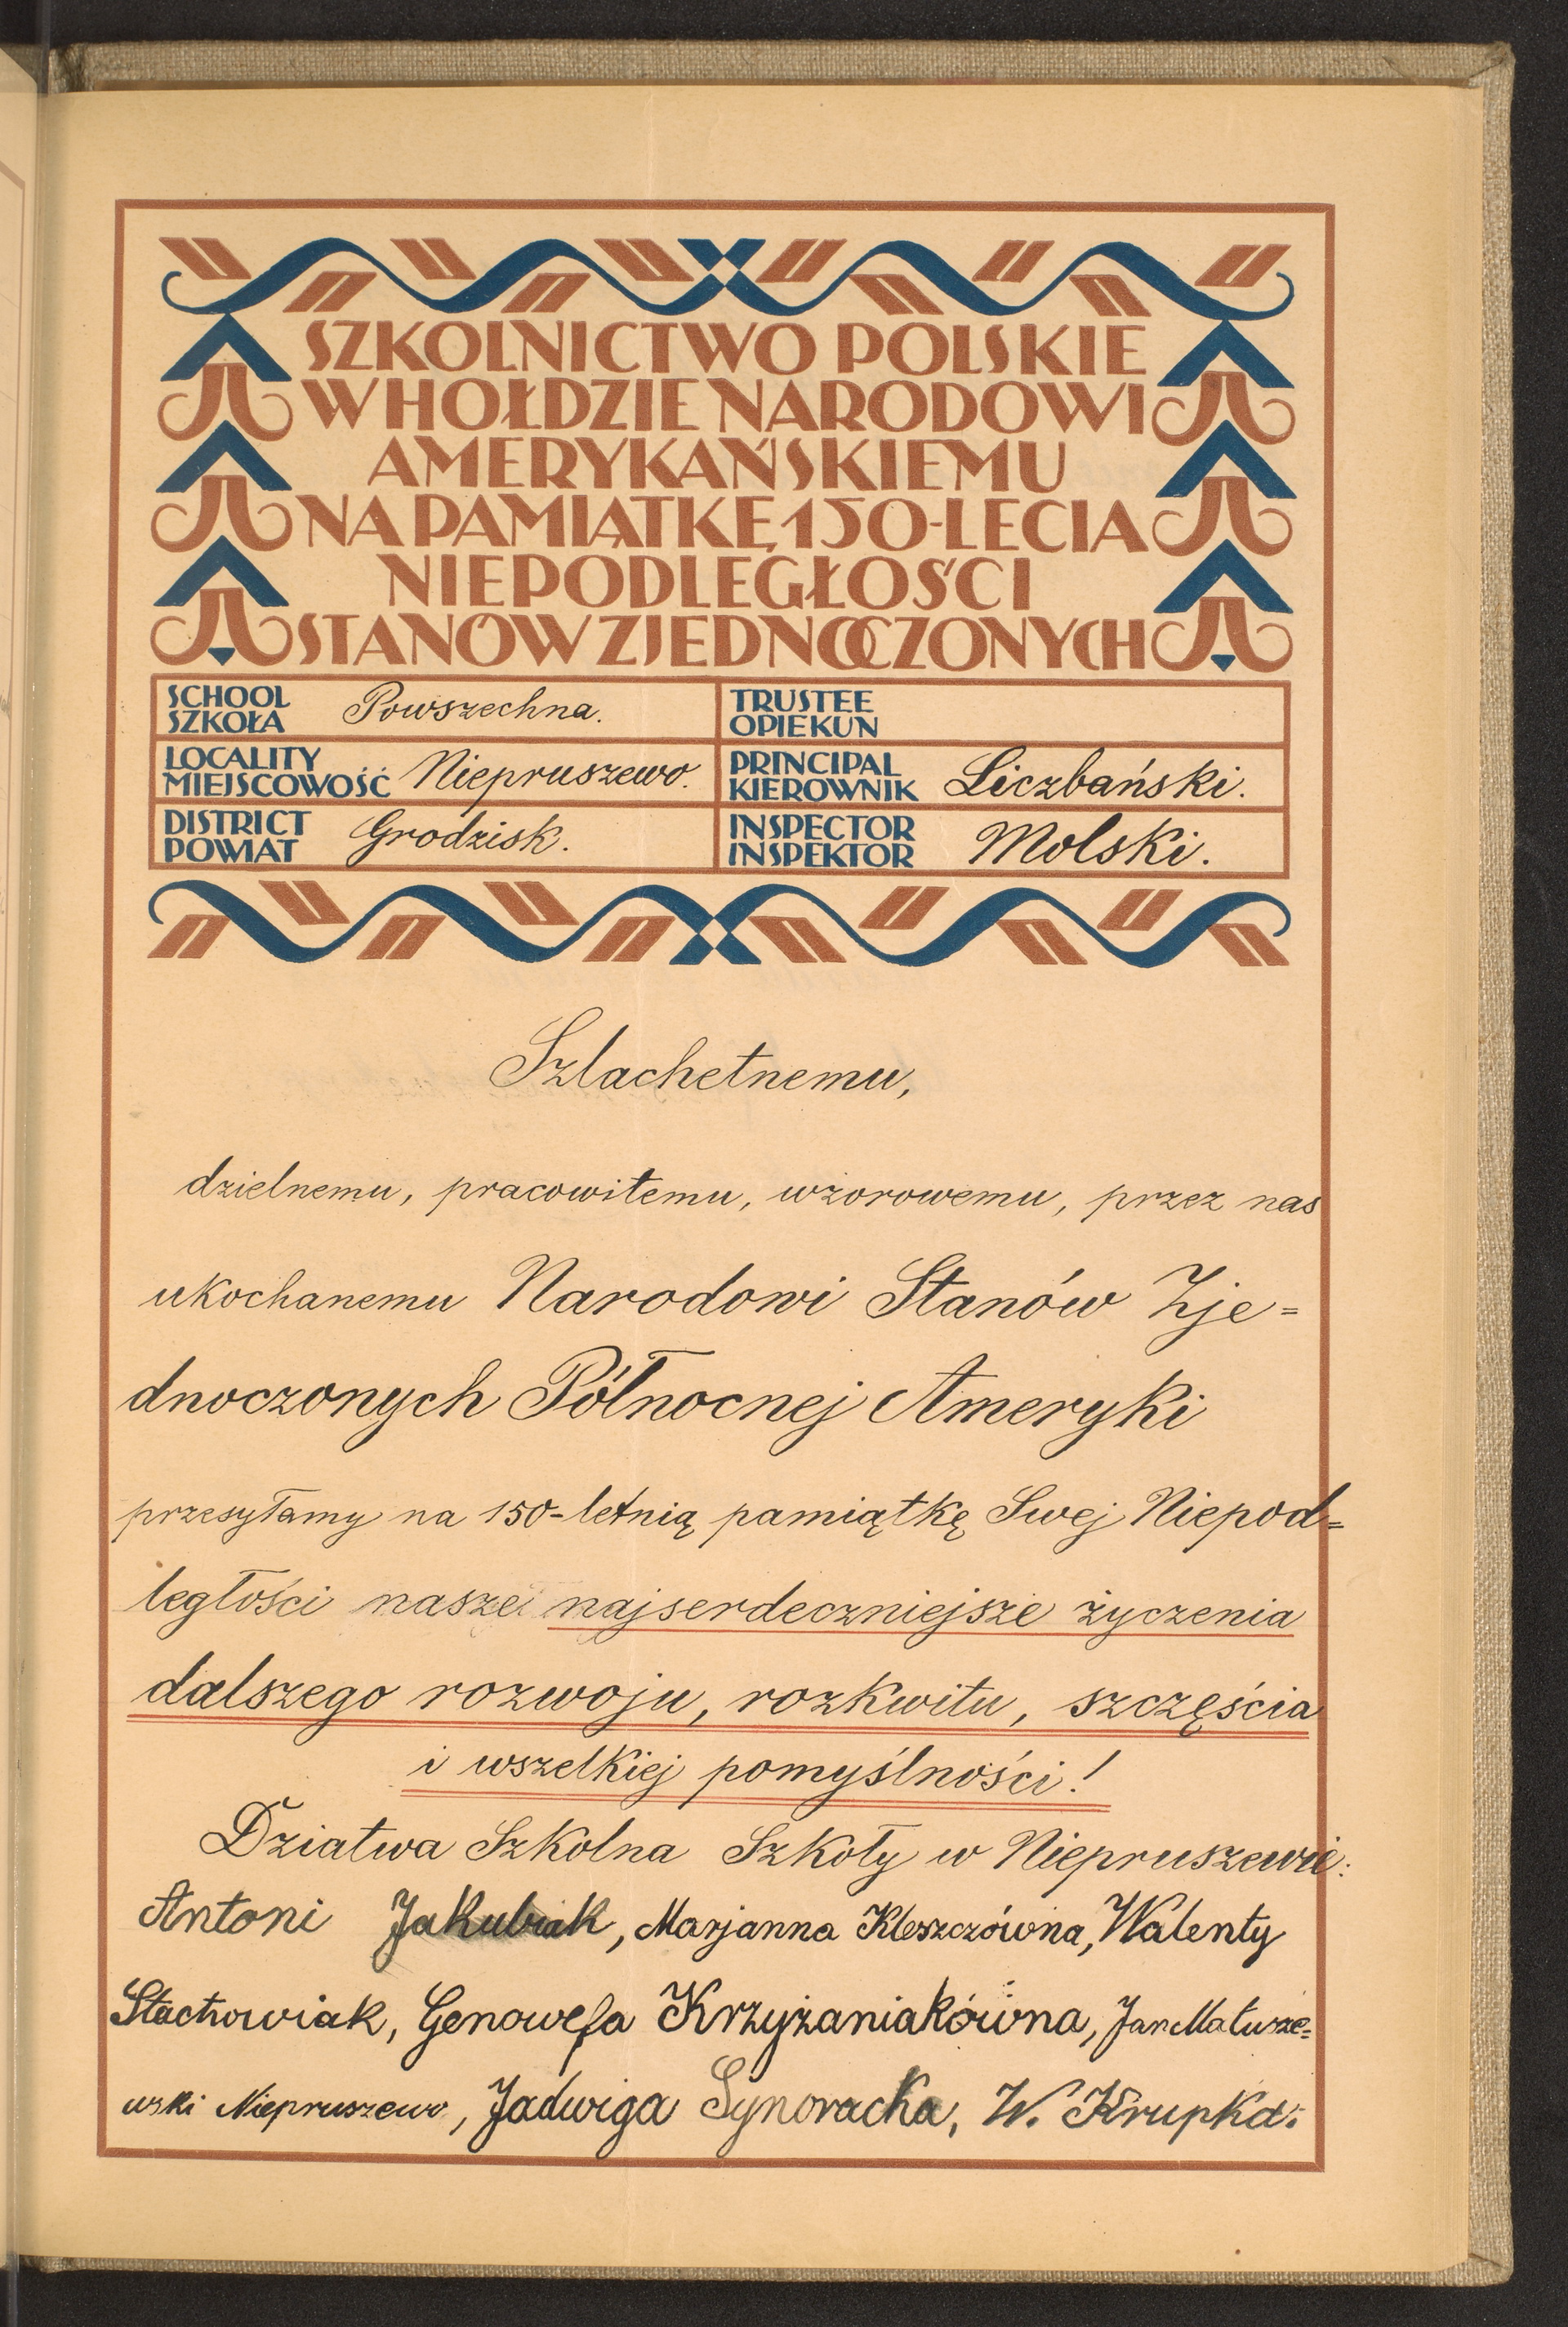 SZKOLNICTWO POLSKIE
W HOŁDZIE NARODOWI
AMERYKAŃSKIEMU
NA PAMIĄTKĘ 150-LECIA
NIEPODLEGŁOŚCI
STANÓW ZJEDNOCZONYCH
SCHOOL
SZKOŁA Powszechna.
TRUSTEE
OPIEKUN
LOCALITY
MIEJSCOWOŚĆ Niepruszewo.
PRINCIPAL
KIEROWNIK Liczbański.
DISTRICT
POWIAT Grodzisk.
INSPECTOR
INSPEKTOR Molski.
Szlachetnemu,
dzielnemu, pracowitemu, wzorowemu, przez nas
ukochanemu Narodowi Stanów Zje=
dnoczonych Północnej Ameryki
przesyłamy na 150-letnią pamiątkę Swej Niepod=
ległości nasze najserdeczniejsze życzenia
dalszego rozwoju, rozkwitu, szczęścia
i wszelkiej pomyślności!
Dziatwa Szkolna Szkoły w Niepruszewie:
Antoni Jakubiak, Marjanna Kleszczówna, Walenty
Stachowiak, Genowefa Krzyżaniakówna, Jan Matusze=
wski Niepruszewo, Jadwiga Synoracka, W. Krupka: